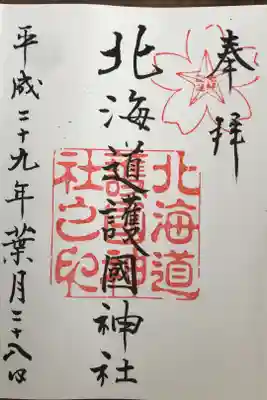 奉拝
北海道護國神社
北海道
護國神
社之印
平成二十九年葉月二十八日